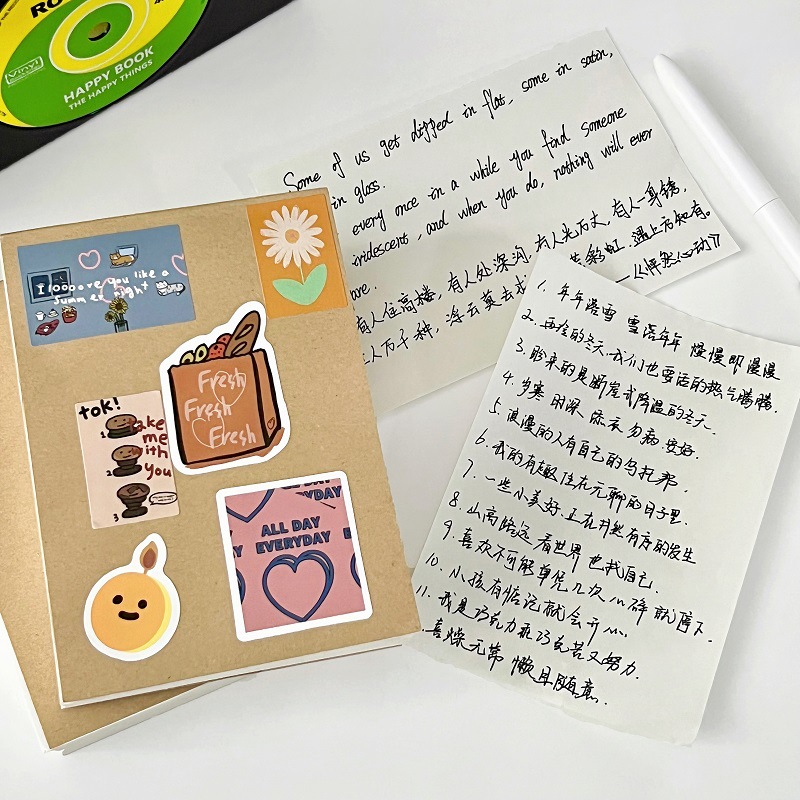 RO
Vinyl
HAPPY BOOK
THE HAPPY THINGS
Some of us get dipped in flat, some in satin,
in gloss.
every once in a while you find someone
iridescent, and when you do, nothing will ever
are.
有人住高楼，有人处深沟，有人光万丈，有人一身锈，
人万千种，浮云莫去求 彩虹，遇上方知有。
——《怦然心动》
I looove you like a
summer night
Fresh
Fresh
Fresh
tok!
take
me
with
you
1.
2
3
ALL DAY
EVERYDAY
1. 年年落雪 雪落年年 慢慢即漫漫
2. 再怪的冬天，我们也要活的热气腾腾.
3. 盼来的是断崖式降温的冬天.
4. 岁寒 困深 添衣 勿病 安好.
5. 浪漫的人有自己的乌托邦.
6. 我的有趣住在无聊的日子里.
7. 一些小美好.正在井然有序的发生
8. 山高路远 看世界 也找自己.
9. 喜欢不可能单凭几次心碎就停下.
10. 小孩有惦记就会开心.
11. 我是巧克力 乖巧克苦又努力.
喜燥无常 懒且随意.